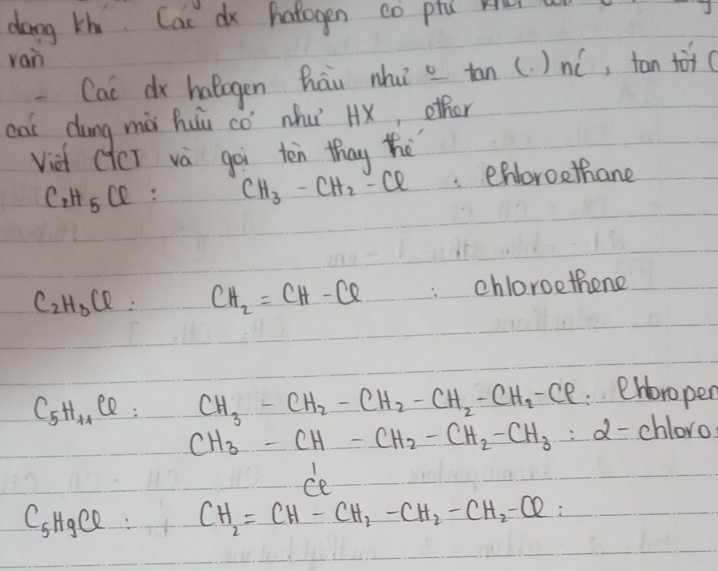 dạng khí. Các dx halogen có phtử khối
rắn
- Các dx halogen hầu như o tan (.) nc, tan tốt (
các dung môi hữu cơ như HX, ether
Viết CTCT và gọi tên thay thế
C₂H₅Cl : CH₃ - CH₂ - Cl : chloroethane
C₂H₃Cl : CH₂ = CH - Cl : chloroethene
C₅H₁₁Cl : CH₃ - CH₂ - CH₂ - CH₂ - CH₂ - Cl : chloropen
CH₃ - CH - CH₂ - CH₂ - CH₃ : 2-chloro
Cl
C₅H₉Cl : CH₂ = CH - CH₂ - CH₂ - CH₂ - Cl :